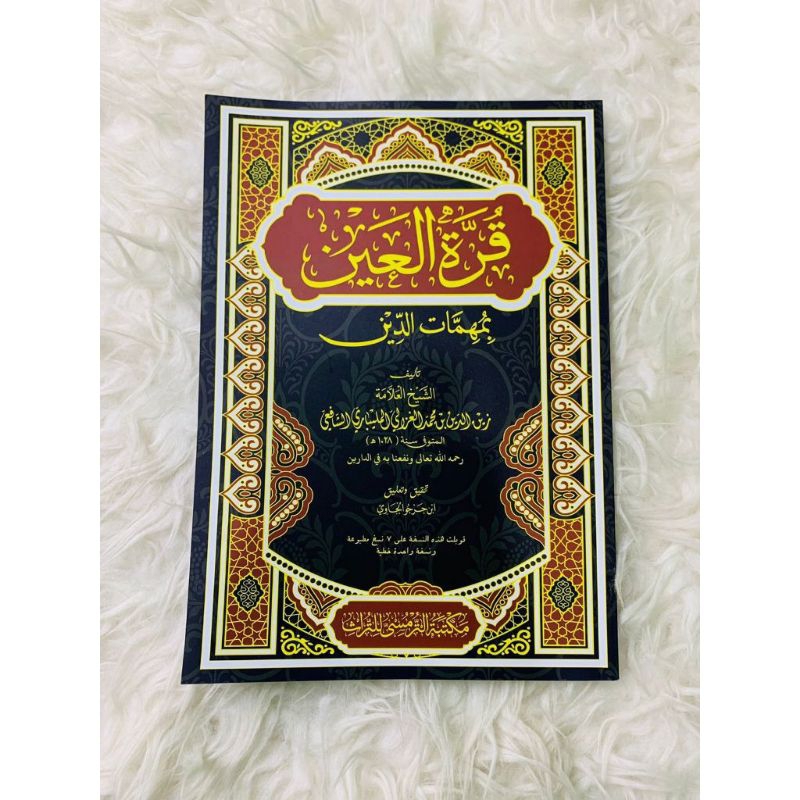 قُرَّةُ العَيْنِ
بِمُهِمَّاتِ الدِّيْنِ
تأليف
الشَّيْخِ العَلَّامَةِ
زين الدين بن محمد الغزالي المليباري الشافعي
المتوفى سنة (١٠٢٨ هـ)
رحمه الله تعالى ونفعنا به في الدارين
تحقيق وتعليق
ابن حرجو الجاوي
قوبلت هذه النسخة على ٧ نسخ مطبوعة
ونسخة واحدة خطية
مكتبة الترمسي للتراث